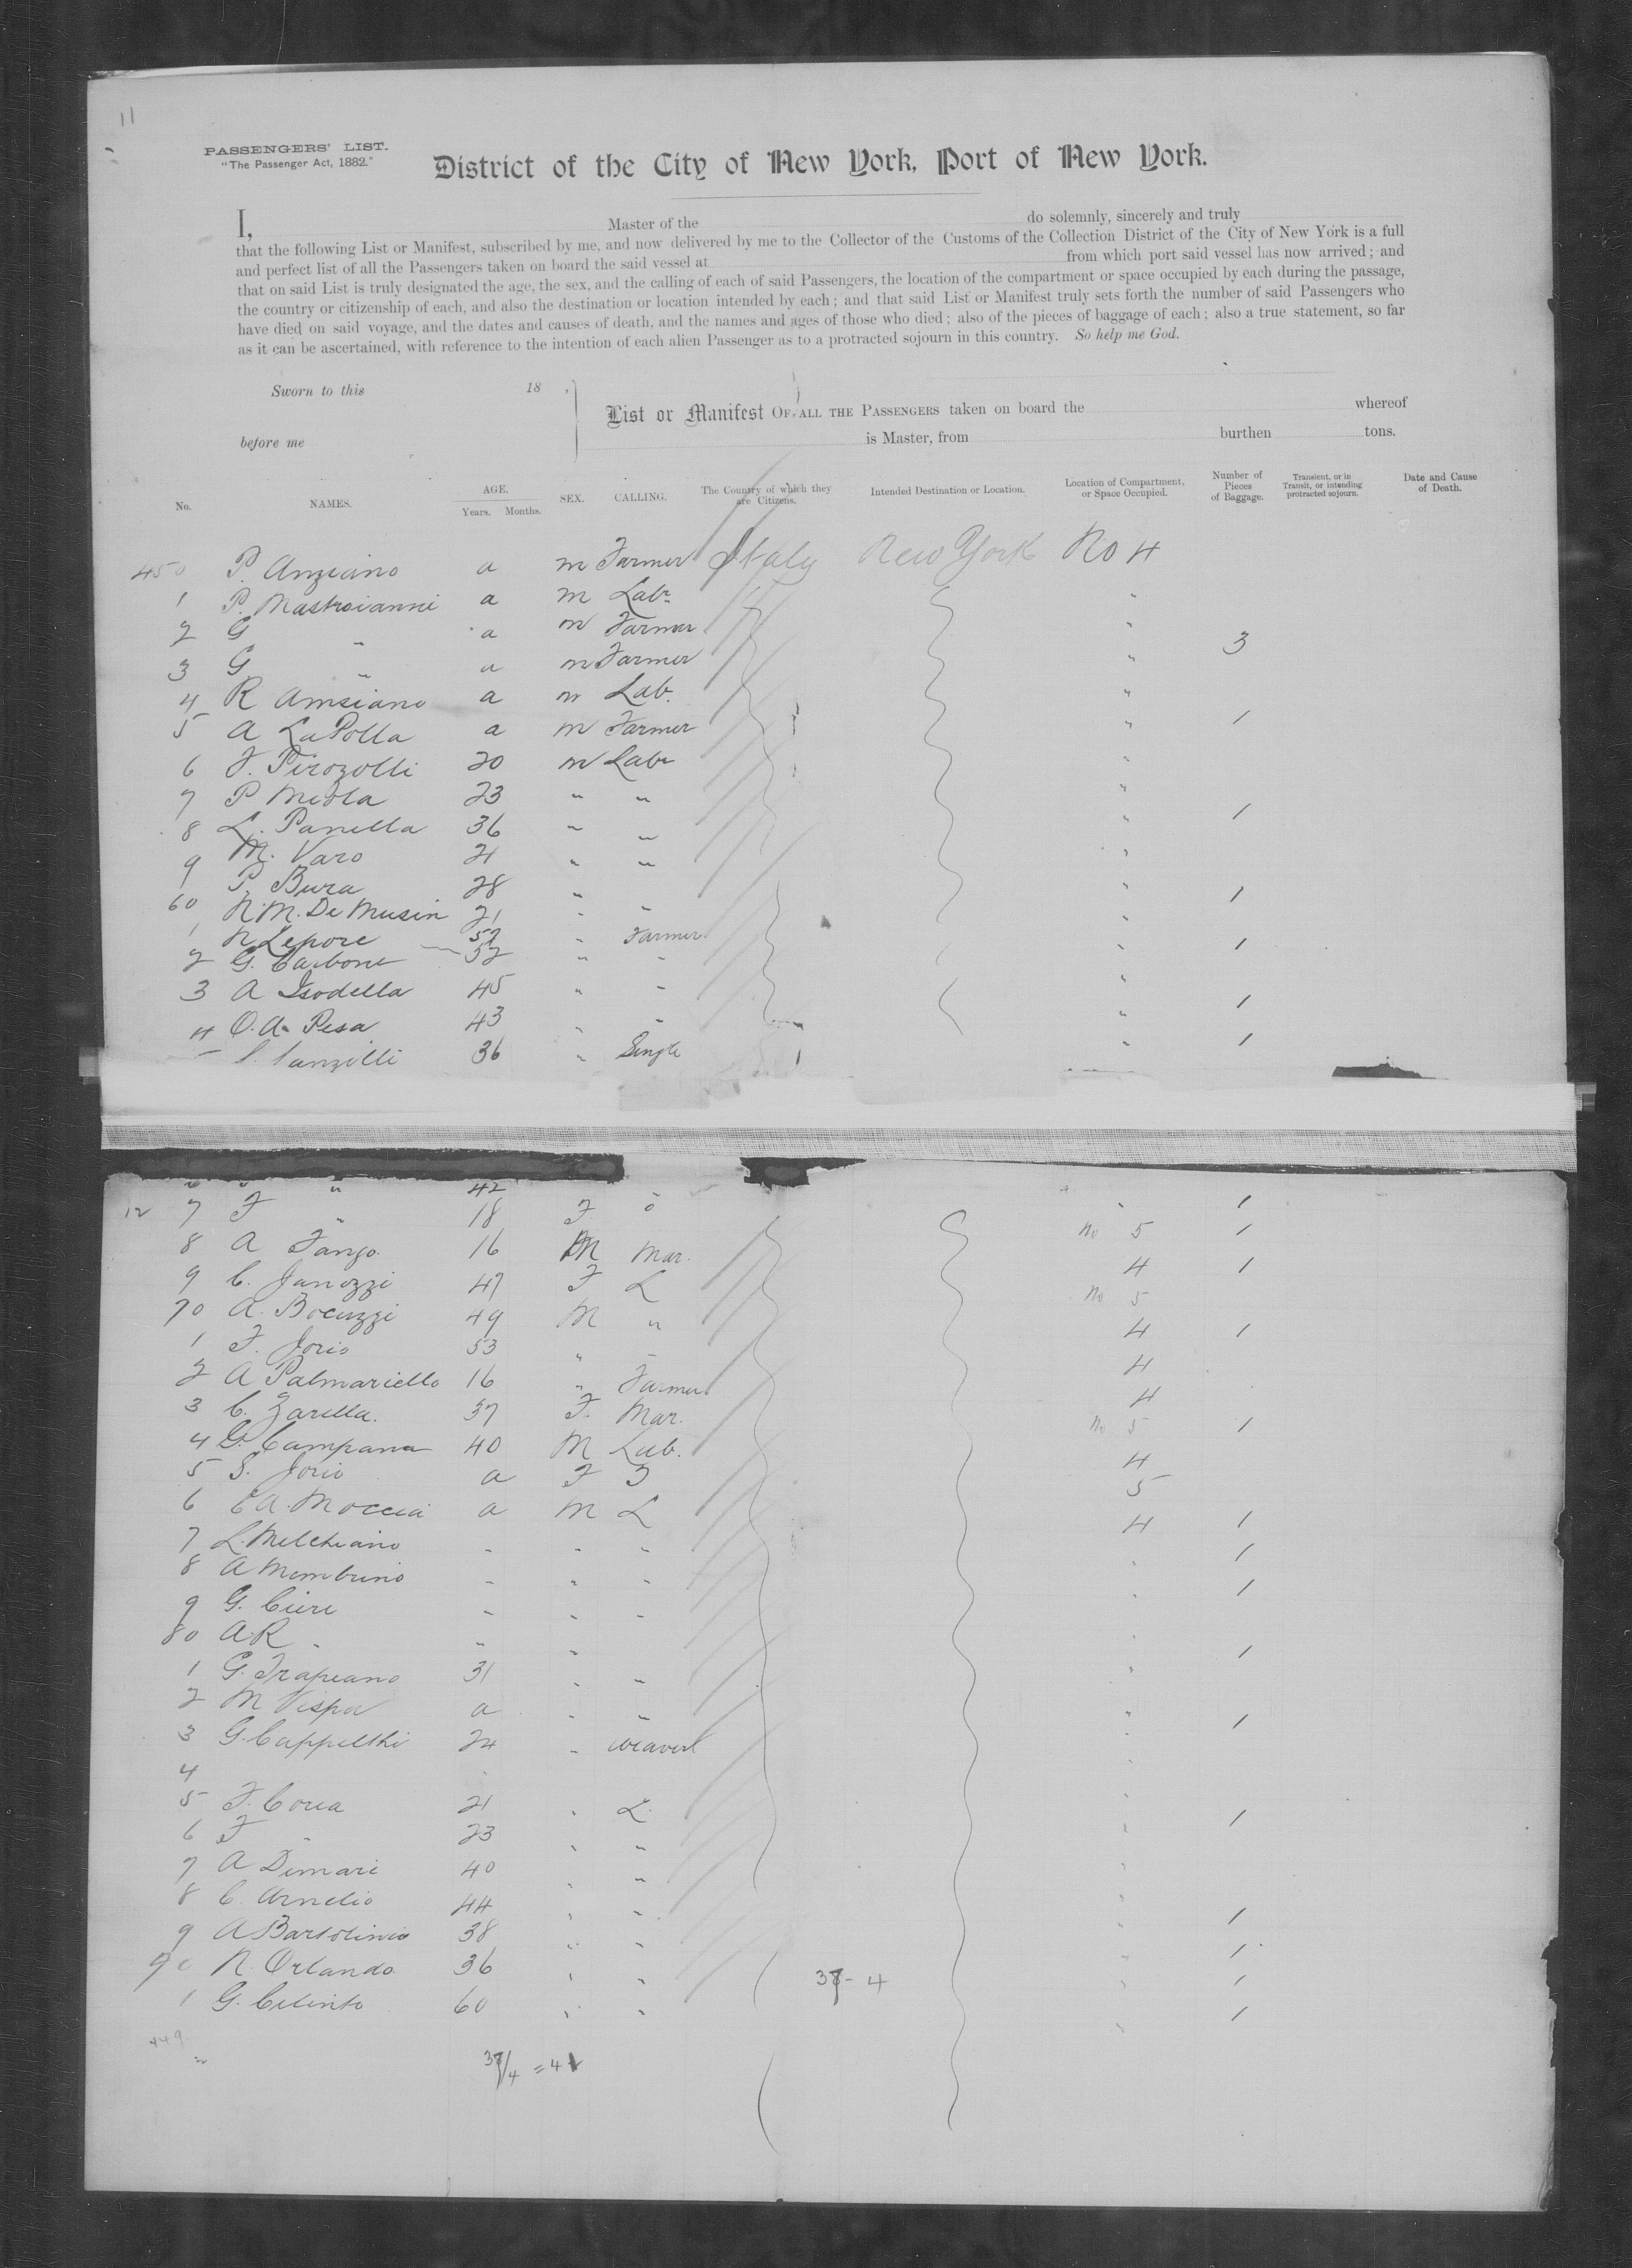 11
PASSENGERS' LIST.
"The Passenger Act, 1882."
District of the City of New York, Port of New York.
I, Master of the do solemnly, sincerely and truly
that the following List or Manifest, subscribed by me, and now delivered by me to the Collector of the Customs of the Collection District of the City of New York is a full
and perfect list of all the Passengers taken on board the said vessel at from which port said vessel has now arrived; and
that on said List is truly designated the age, the sex, and the calling of each of said Passengers, the location of the compartment or space occupied by each during the passage,
the country or citizenship of each, and also the destination or location intended by each; and that said List or Manifest truly sets forth the number of said Passengers who
have died on said voyage, and the dates and causes of death, and the names and ages of those who died; also of the pieces of baggage of each; also a true statement, so far
as it can be ascertained, with reference to the intention of each alien Passenger as to a protracted sojourn in this country. So help me God.
Sworn to this 18 ,
before me
List or Manifest OF ALL THE PASSENGERS taken on board the whereof
is Master, from burthen tons.
No. NAMES. AGE. Years. Months. SEX. CALLING. The Country of which they are Citizens. Intended Destination or Location. Location of Compartment, or Space Occupied. Number of Pieces of Baggage. Transient, or in Transit, or intending protracted sojourn. Date and Cause of Death.
450 P. Anziano a m Farmer Italy New York No 4
1 P. Mastroianni a m Labr "
2 G " a m Farmer " 3
3 G " a m Farmer "
4 R Amsiano a m Lab. "
5 A LaPolla a m Farmer " 1
6 F. Pirozolli 20 m Labr "
7 P Meola 23 " " "
8 L. Panella 36 " " " 1
9 M. Varo 21 " " "
60 P. Bura 28 " " 1
N.M. De Musin 21 " " "
1 N Lepore 52 " Farmer 1
2 G. Carbone 52 " " "
3 A Isodella 45 " " " 1
4 O.A. Pesa 43 " " "
36 " Single " 1
" " 42
12 7 F " 18 F " " 1
8 A Fango 16 M Mar. No 5 1
9 C. Janozzi 47 F L 4 1
70 A. Bocuzzi 49 M " No 5
1 F. Jorio 53 " " 4 1
2 A Palmariello 16 " Farmer 4
3 C. Zarella. 37 F. Mar. 4
4 G. Campana 40 M Lab. No 5 1
5 S. Jorio a F 4
6 C A. Moccia a M L 5
7 L. Melchiano " " " 4 1
8 A Membrino " " " " 1
9 G. Cieri " " " 1
80 A.R " " " "
1 G. Trapeano 31 " " 1
2 M Vespa a " " "
3 G. Cappelthi 24 " weaver " 1
4
5 F. Corea 21 " L. "
6 F " 23 " " " 1
7 A Dimari 40 " " "
8 C. Arnelio 44 " " "
9 A Bartolinio 38 " " " 1
90 N. Orlando 36 " " " 1
1 G. Celinto 60 " " " 1
37-4
449
37/4 = 41